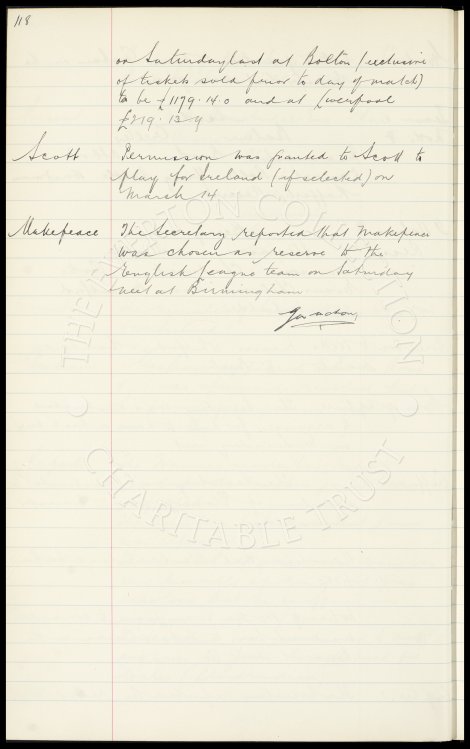 118
on Saturday last at Bolton (exclusive
of tickets sold prior to day of match)
to be £1179.14.0 and at Liverpool
£219.13.9
Scott Permission was granted to Scott to
play for Ireland (if selected) on
March 14
Makepeace The Secretary reported that Makepeace
was chosen as reserve to the
English League team on Saturday
next at Birmingham
THE EVERTON COLLECTION
CHARITABLE TRUST